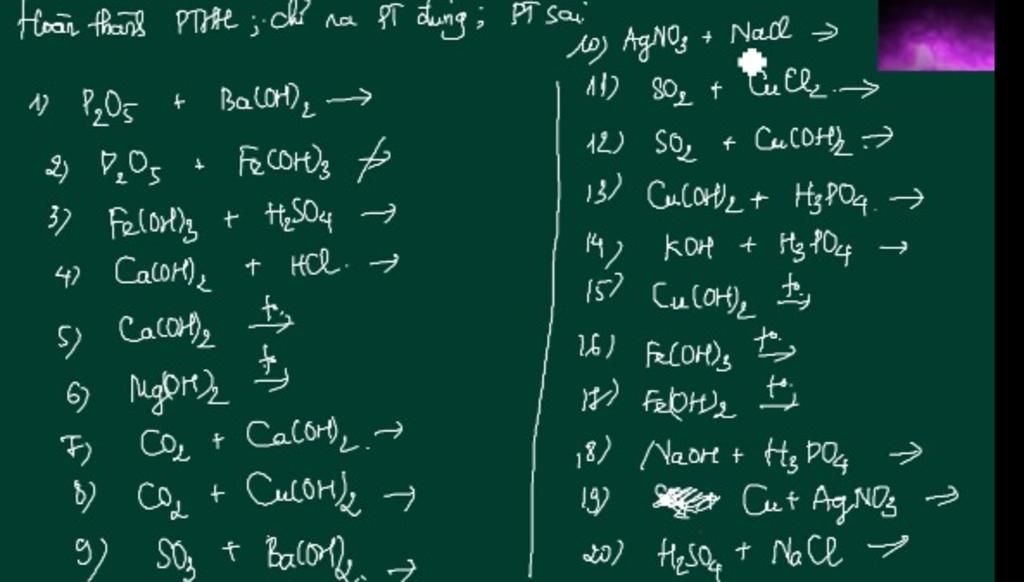 Hoàn thành PTHH ; chỉ ra PT đúng ; PT sai
1) P₂O₅ + Ba(OH)₂ →
2) P₂O₅ + Fe(OH)₃ ↛
3) Fe(OH)₃ + H₂SO₄ →
4) Ca(OH)₂ + HCl. →
5) Ca(OH)₂ t°→
6) Mg(OH)₂ t°→
7) CO₂ + Ca(OH)₂. →
8) CO₂ + Cu(OH)₂ →
9) SO₃ + Ba(OH)₂. →
10) AgNO₃ + NaCl →
11) SO₂ + CuCl₂. →
12) SO₂ + Cu(OH)₂ →
13) Cu(OH)₂ + H₃PO₄. →
14) KOH + H₃PO₄ →
15) Cu(OH)₂ t°→
16) Fe(OH)₃ t°→
17) Fe(OH)₂ t°→
18) NaOH + H₃PO₄ →
19) Cu + AgNO₃ →
20) H₂SO₄ + NaCl →